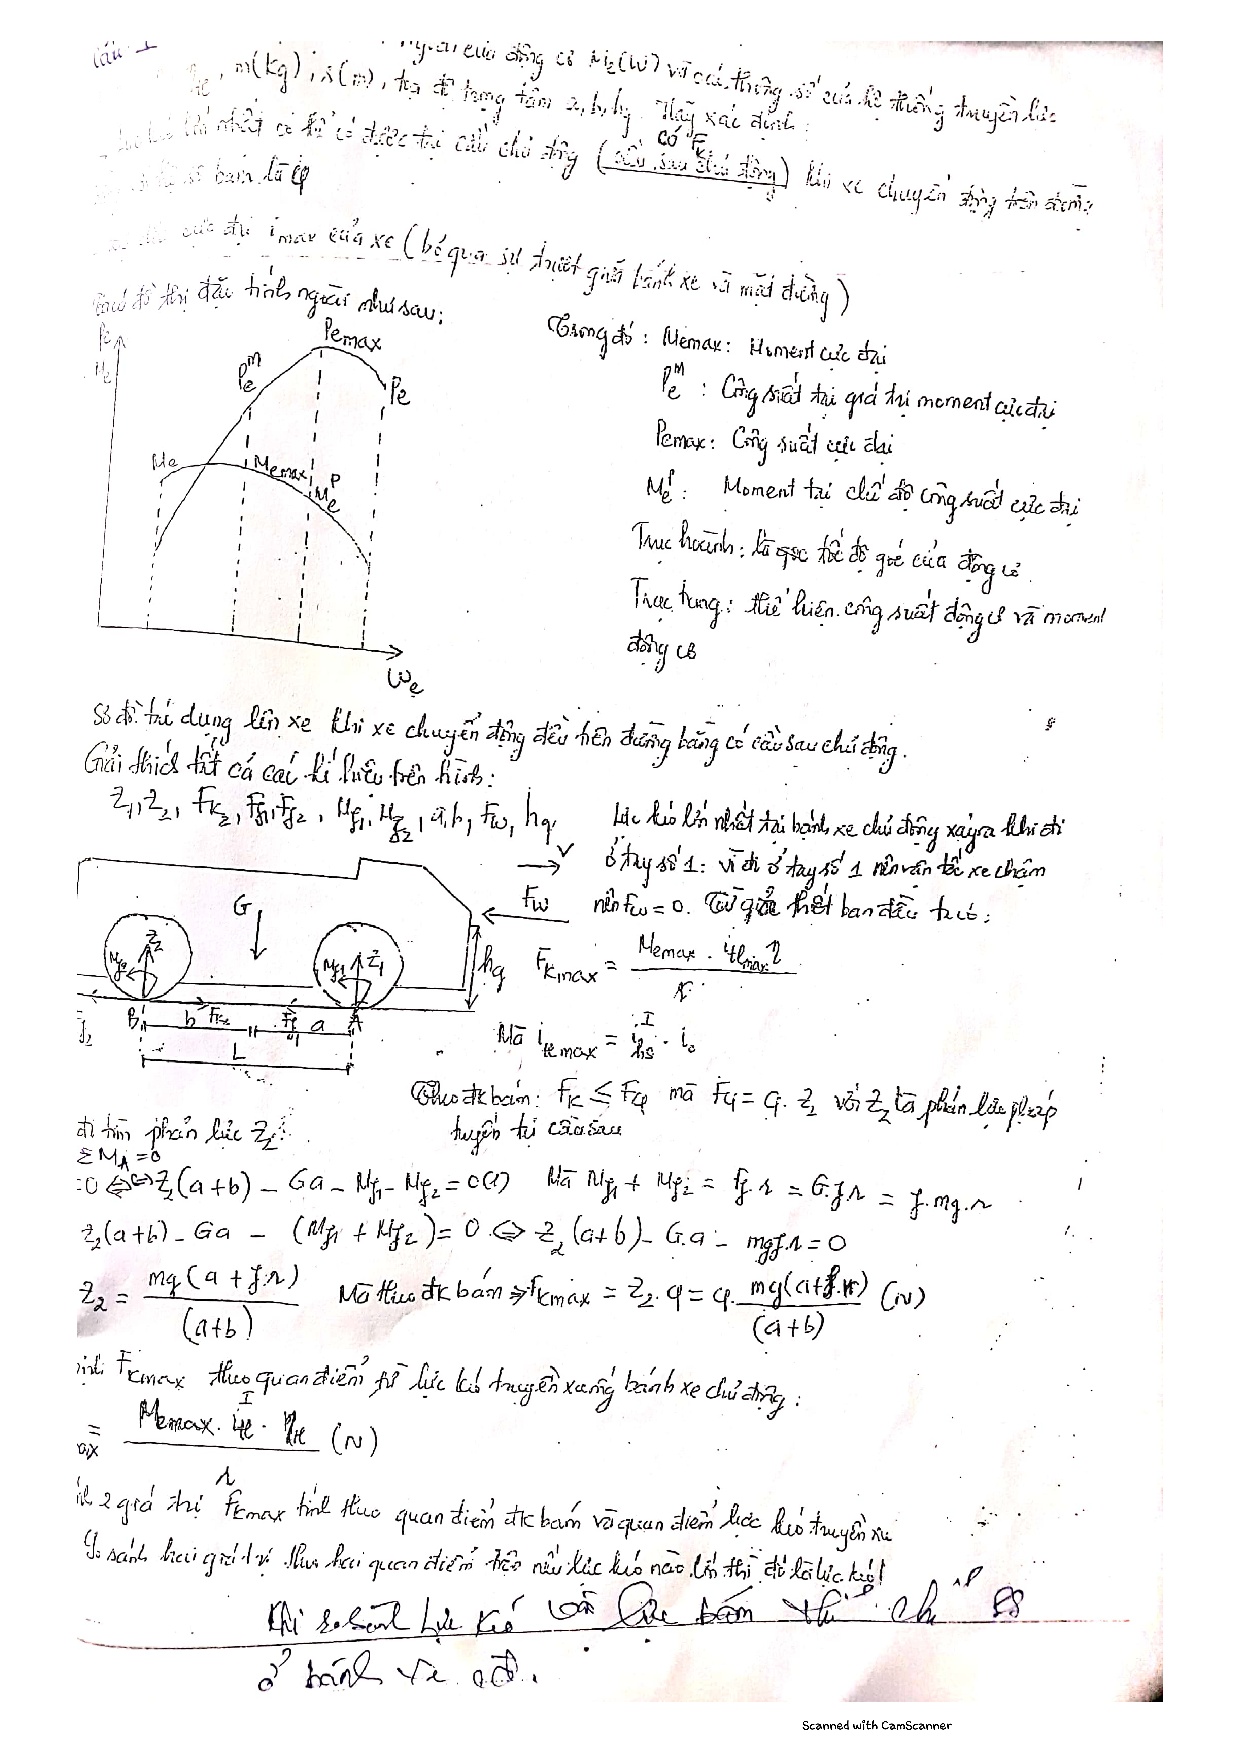 Câu 1
ngoài của động cơ Me(W) và các thông số của hệ thống truyền lực
m(kg), r(m), tọa độ trọng tâm a, b, hg. Hãy xác định:
lớn nhất có thể có được tại cầu chủ động (cầu sau chủ động) khi xe chuyển động trên đường
có Fk
số bám là φ
cực đại imax của xe (bỏ qua sự trượt giữa bánh xe và mặt đường)
đồ thị đặc tính ngoài như sau:
Pe
Me
Pemax
Pe^M
Pe
Me
Memax
Me^P
ωe
Trong đó: Memax: Moment cực đại
Pe^M: Công suất tại giá trị moment cực đại
Pemax: Công suất cực đại
Me^P: Moment tại chế độ công suất cực đại
Trục hoành: là tốc độ góc của động cơ
Trục tung: thể hiện công suất động cơ và moment
động cơ
Sơ đồ tác dụng lên xe khi xe chuyển động đều trên đường bằng có cầu sau chủ động.
Giải thích tất cả các kí hiệu trên hình:
Z1, Z2, Fk2, Ff1, Ff2, Mf1, Mf2, a, b, Fw, hg
Lực kéo lớn nhất tại bánh xe chủ động xảy ra khi đi
ở tay số 1: vì đi ở tay số 1 nên vận tốc xe chậm
nên Fw = 0. Từ giả thiết ban đầu ta có:
V
Fw
G
hg
Z2
Mf2
Mf1
Z1
B
b
Fk2
Ff1
a
A
f2
L
Fkmax = Memax . itlmax η / r
Mà itlmax = ihs^I . io
Theo đk bám: Fk ≤ Fφ mà Fφ = φ. Z2 với Z2 là phản lực pháp
tuyến tại cầu sau
đi tìm phản lực Z2:
ΣMA = 0
=0 ⇔ Z2(a+b) – Ga – Mf1 – Mf2 = 0 (1) Mà Mf1 + Mf2 = Ff.r = G.f.r = f.mg.r
Z2(a+b) – Ga – (Mf1 + Mf2) = 0 ⇔ Z2(a+b) – G.a – mgf.r = 0
Z2 = mg(a + f.r) / (a+b) Mà theo đk bám ⇒ Fkmax = Z2.φ = φ. mg(a+f.r) / (a+b) (N)
Fkmax theo quan điểm từ lực kéo truyền xuống bánh xe chủ động:
= Memax. itl^I. ηtl / r (N)
ax
2 giá trị Fkmax tính theo quan điểm đk bám và quan điểm lực kéo truyền xu
So sánh hai giá trị theo hai quan điểm trên nếu lực kéo nào lớn thì đó là lực kéo
Khi so sánh lực kéo và lực bám thì chỉ SS
ở bánh xe cđ.
Scanned with CamScanner